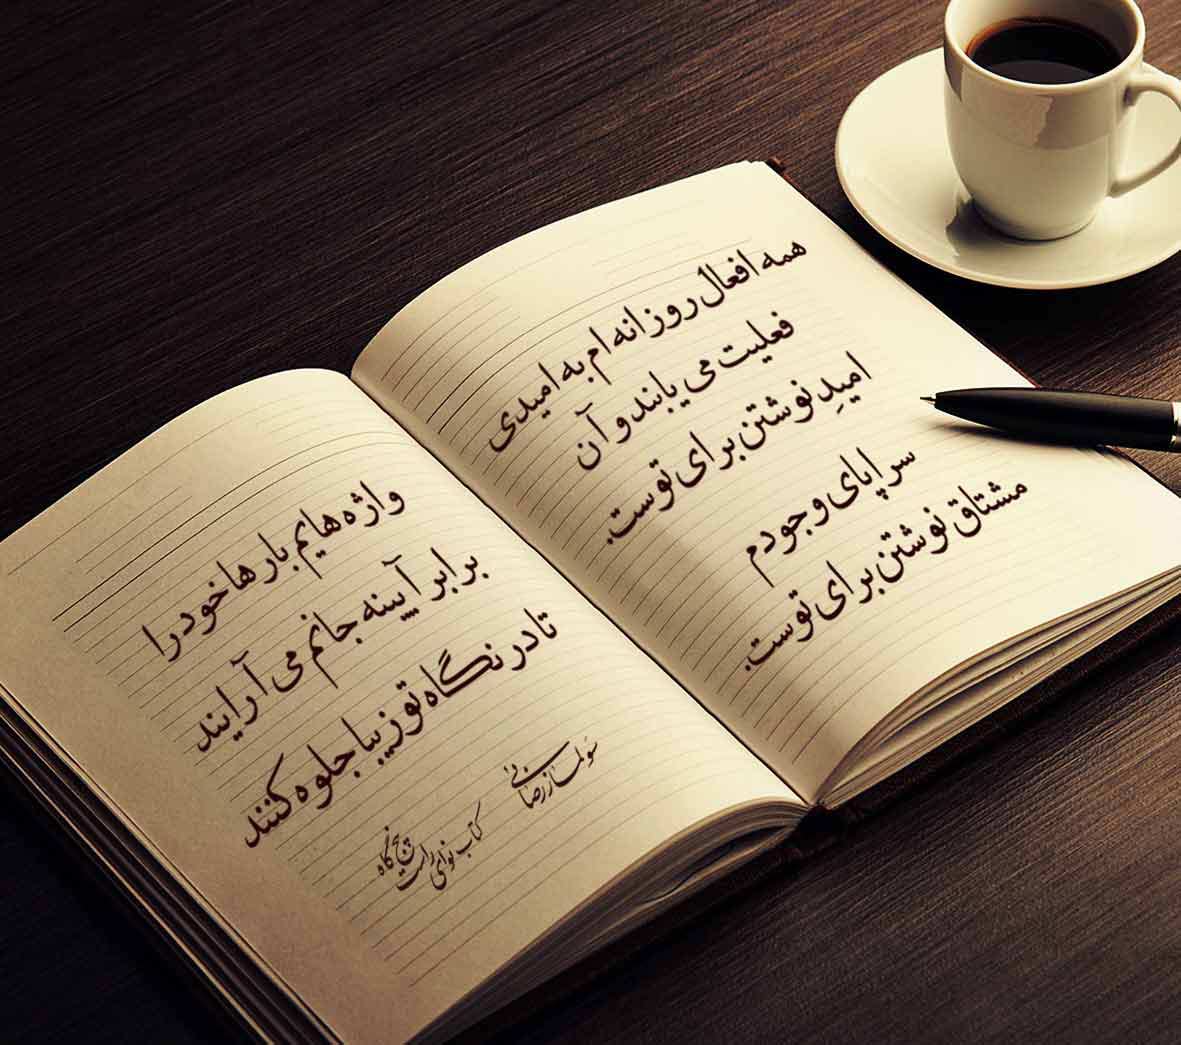 همه افعال روزانه ام به امیدی
فعلیت می یابند و آن
امیدِ نوشتن برای توست.
سراپای وجودم
مشتاق نوشتن برای توست.
واژه هایم بارها خود را
برابر آیینه جانم می آرایند
تا در نگاه تو زیبا جلوه کنند
سولماز رضایی
کتاب نوای راست پنج گاه